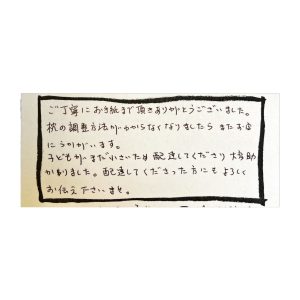 ご丁寧にお手紙まで頂きありがとうございました。
枕の調整方法がわからなくなりましたら またお店
にうかがいます。
子どもがまだ小さいため 配達してくださり 大変助
かりました。配達してくださった方にも よろしく
お伝え下さいませ。